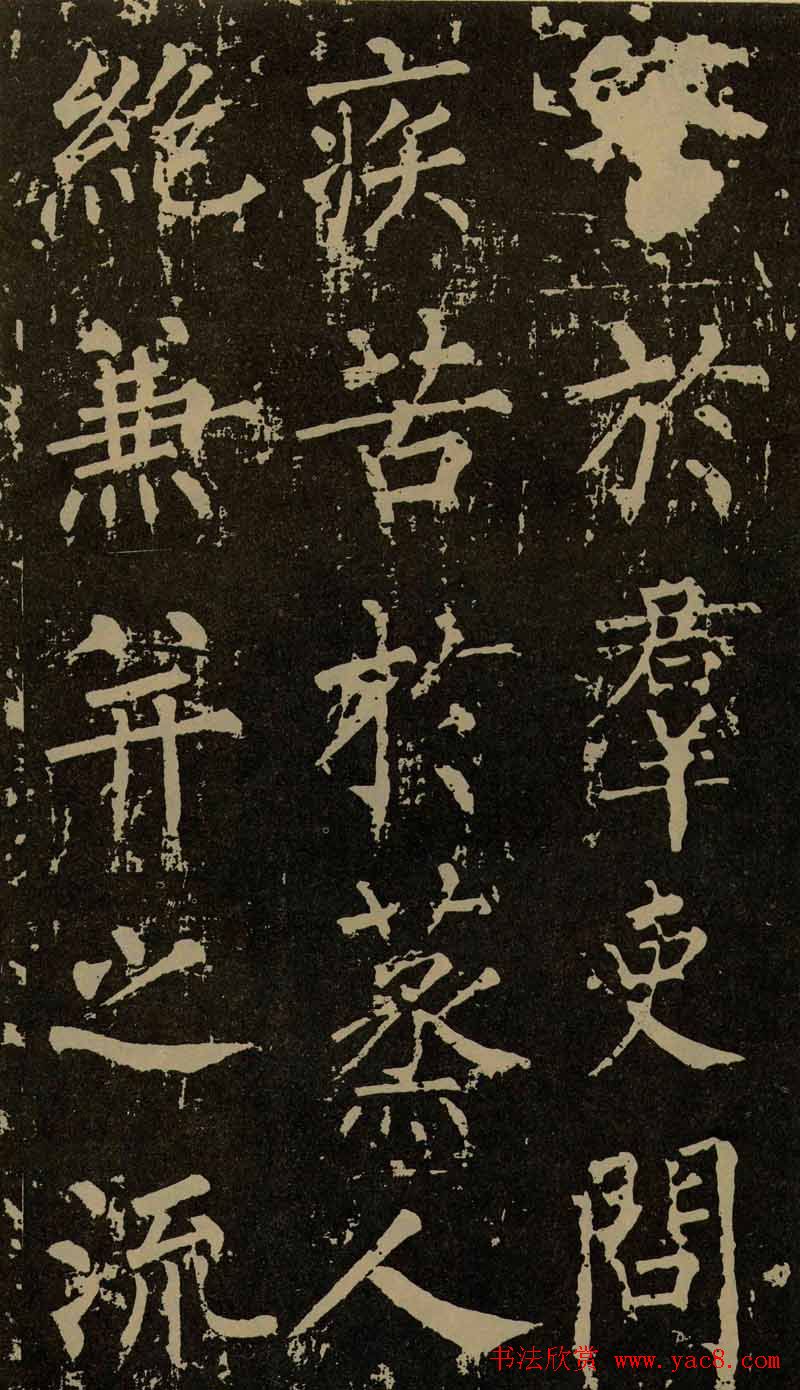 於群吏問
疾苦於蒸人
絶兼并之流
书法欣赏 www.yac8.com